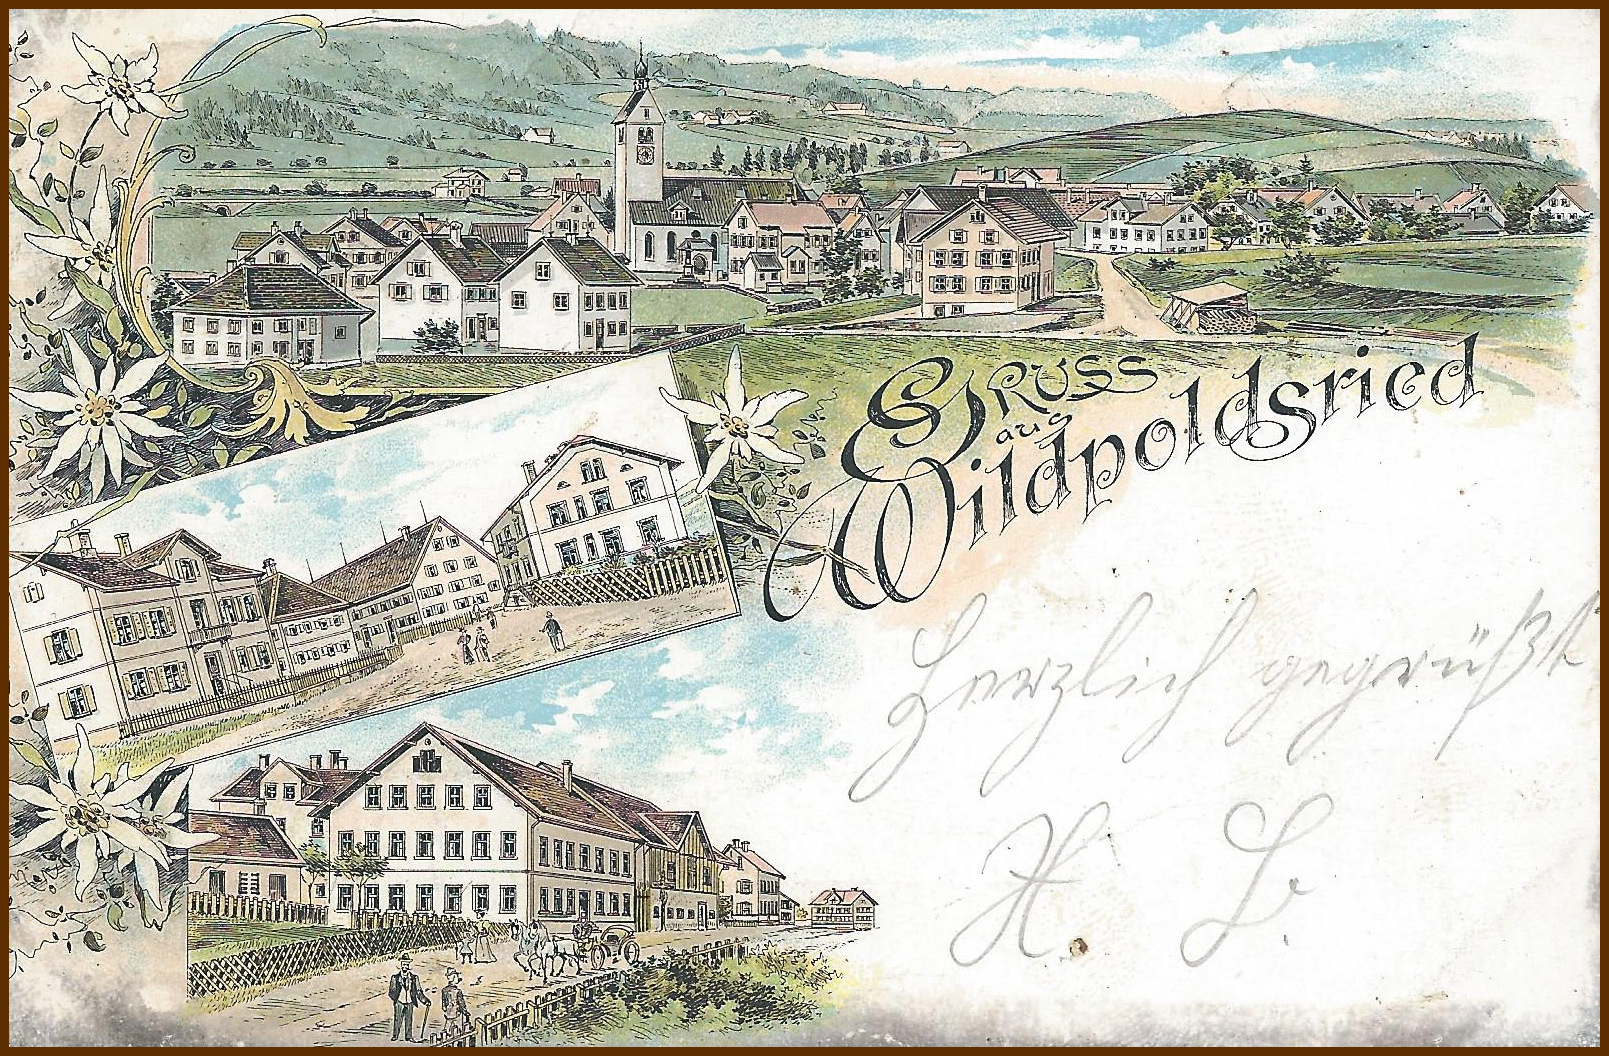 Gruss
aus
Wildpoldsried
Herzlich gegrüßt
H. L.